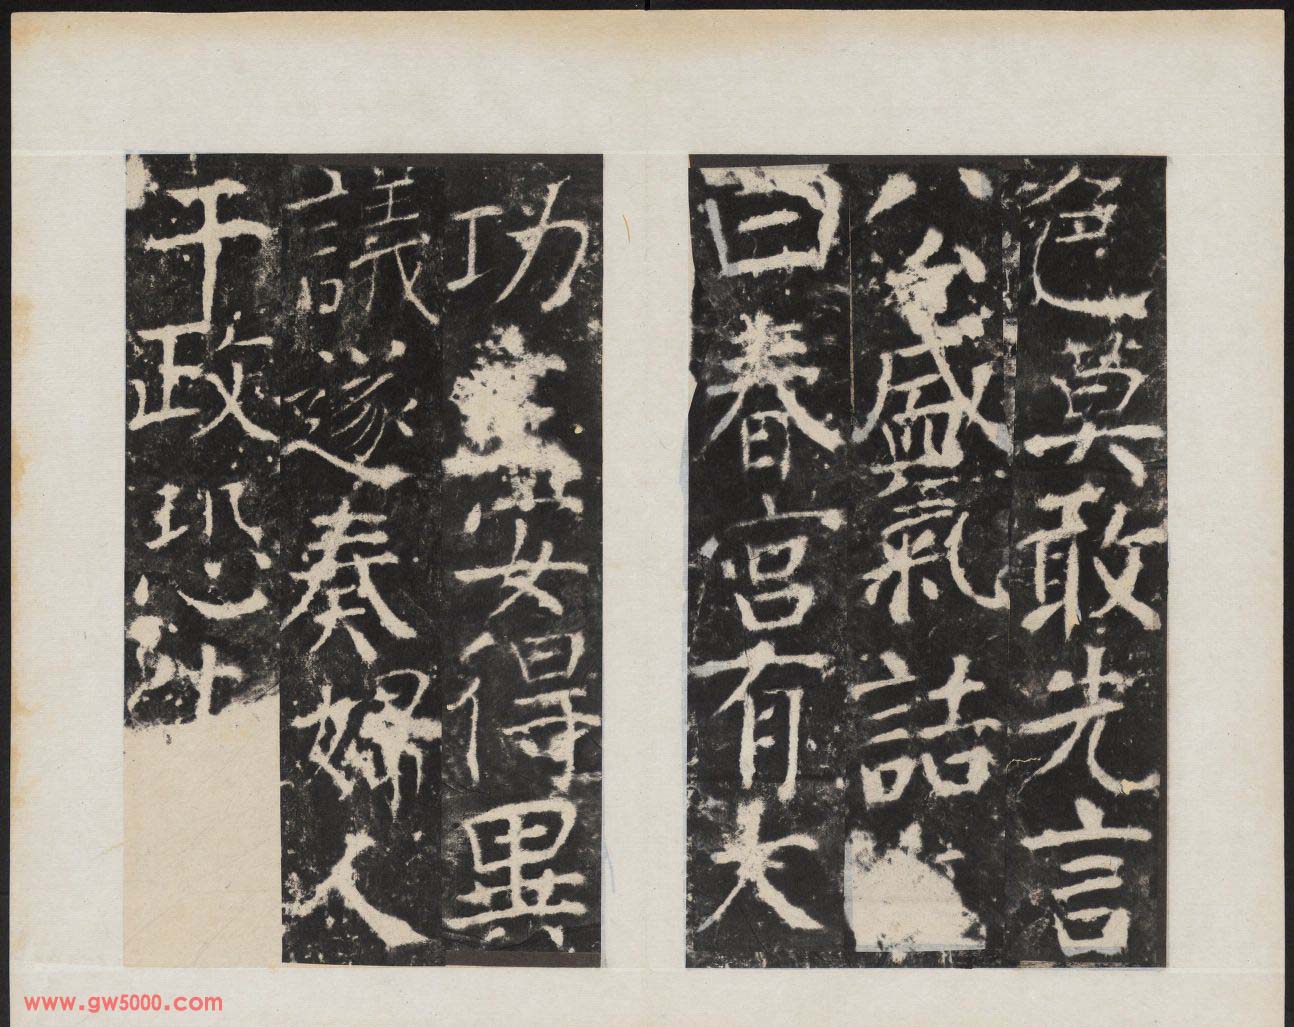 色莫敢先言
公盛氣詰
曰春宮有大
功
安得異
議遂奏婦人
干政恐
www.gw5000.com